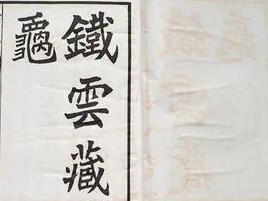 鐵雲藏
龜